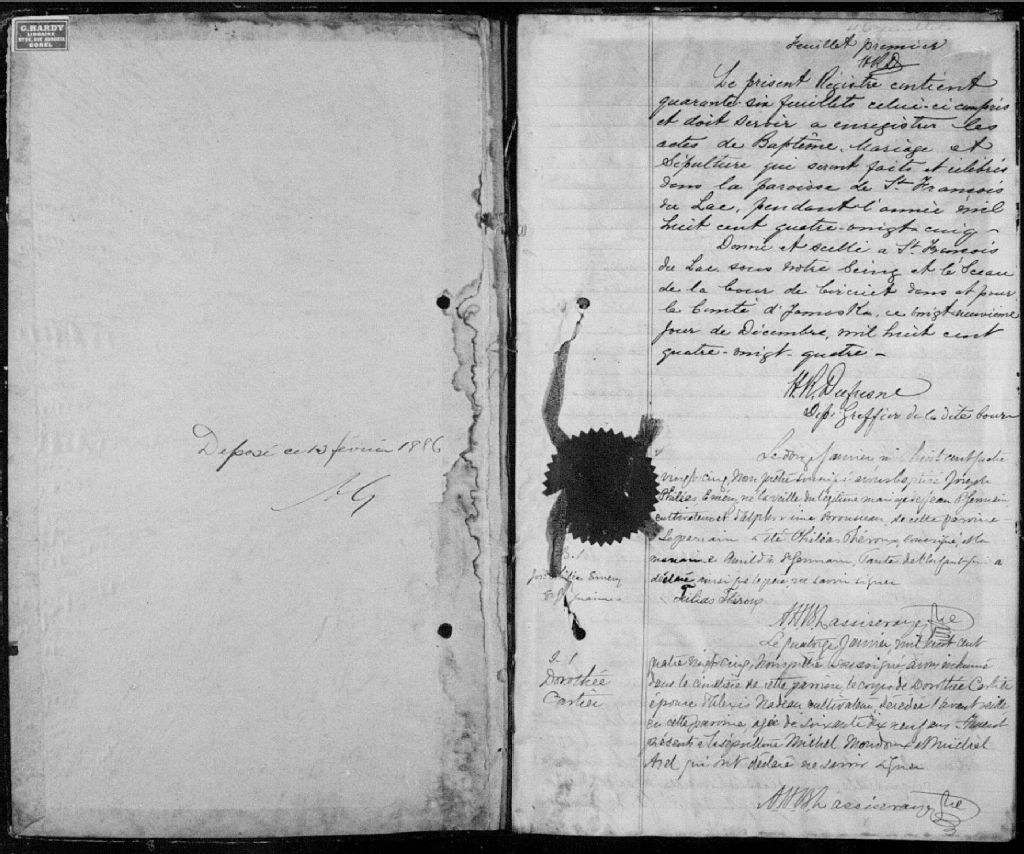 G. HARDY
LIBRAIRE
SOREL
Déposé ce 13 février 1886
Feuillet premier
H.R.D.
Le présent Régistre contient
quarante-six feuillets celui-ci compris
et doit servir a enregistrer les
actes de Baptême, Mariage et
Sépulture qui seront faits et célébrés
dans la paroisse de St François
du Lac, pendant l'année mil
huit cent quatre-vingt-cinq -
Donné et scellé a St François
du Lac, sous notre seing et le Sceau
de la Cour de Circuit dans et pour
le Comté d'Yamaska, ce vingt neuvième
jour de Décembre, mil huit cent
quatre-vingt-quatre -
H.R. Dufresne
Dep. Greffier de la dite Cour
B. 1
St Germain
Le Janvier mil huit cent quatre
vingt cinq, Nous prêtre soussigné avons baptisé Joseph
Philias Emery, né la veille du légitime mariage de Jean St Germain
cultivateur et d'Elphérina Brousseau de cette paroisse -
Le parrain a été Philias Théroux et la
marraine St Germain, tante de l'enfant qui a
déclaré ainsi que le père, ne savoir signer
Filias Théroux
Ptre
S. 1
Dorothée
Cartier
Le quatorze Janvier, mil huit cent
quatre vingt cinq, Nous prêtre soussigné avons inhumé
dans le cimetière de cette paroisse, le corps de Dorothée Cartier
épouse d'Alexis Nadeau cultivateur, décédée l'avant veille
en cette paroisse, agée de soixante dix neuf ans. Furent
présents à la sépulture Michel Mondoux et Michel
qui ont déclaré ne savoir signer
Ptre